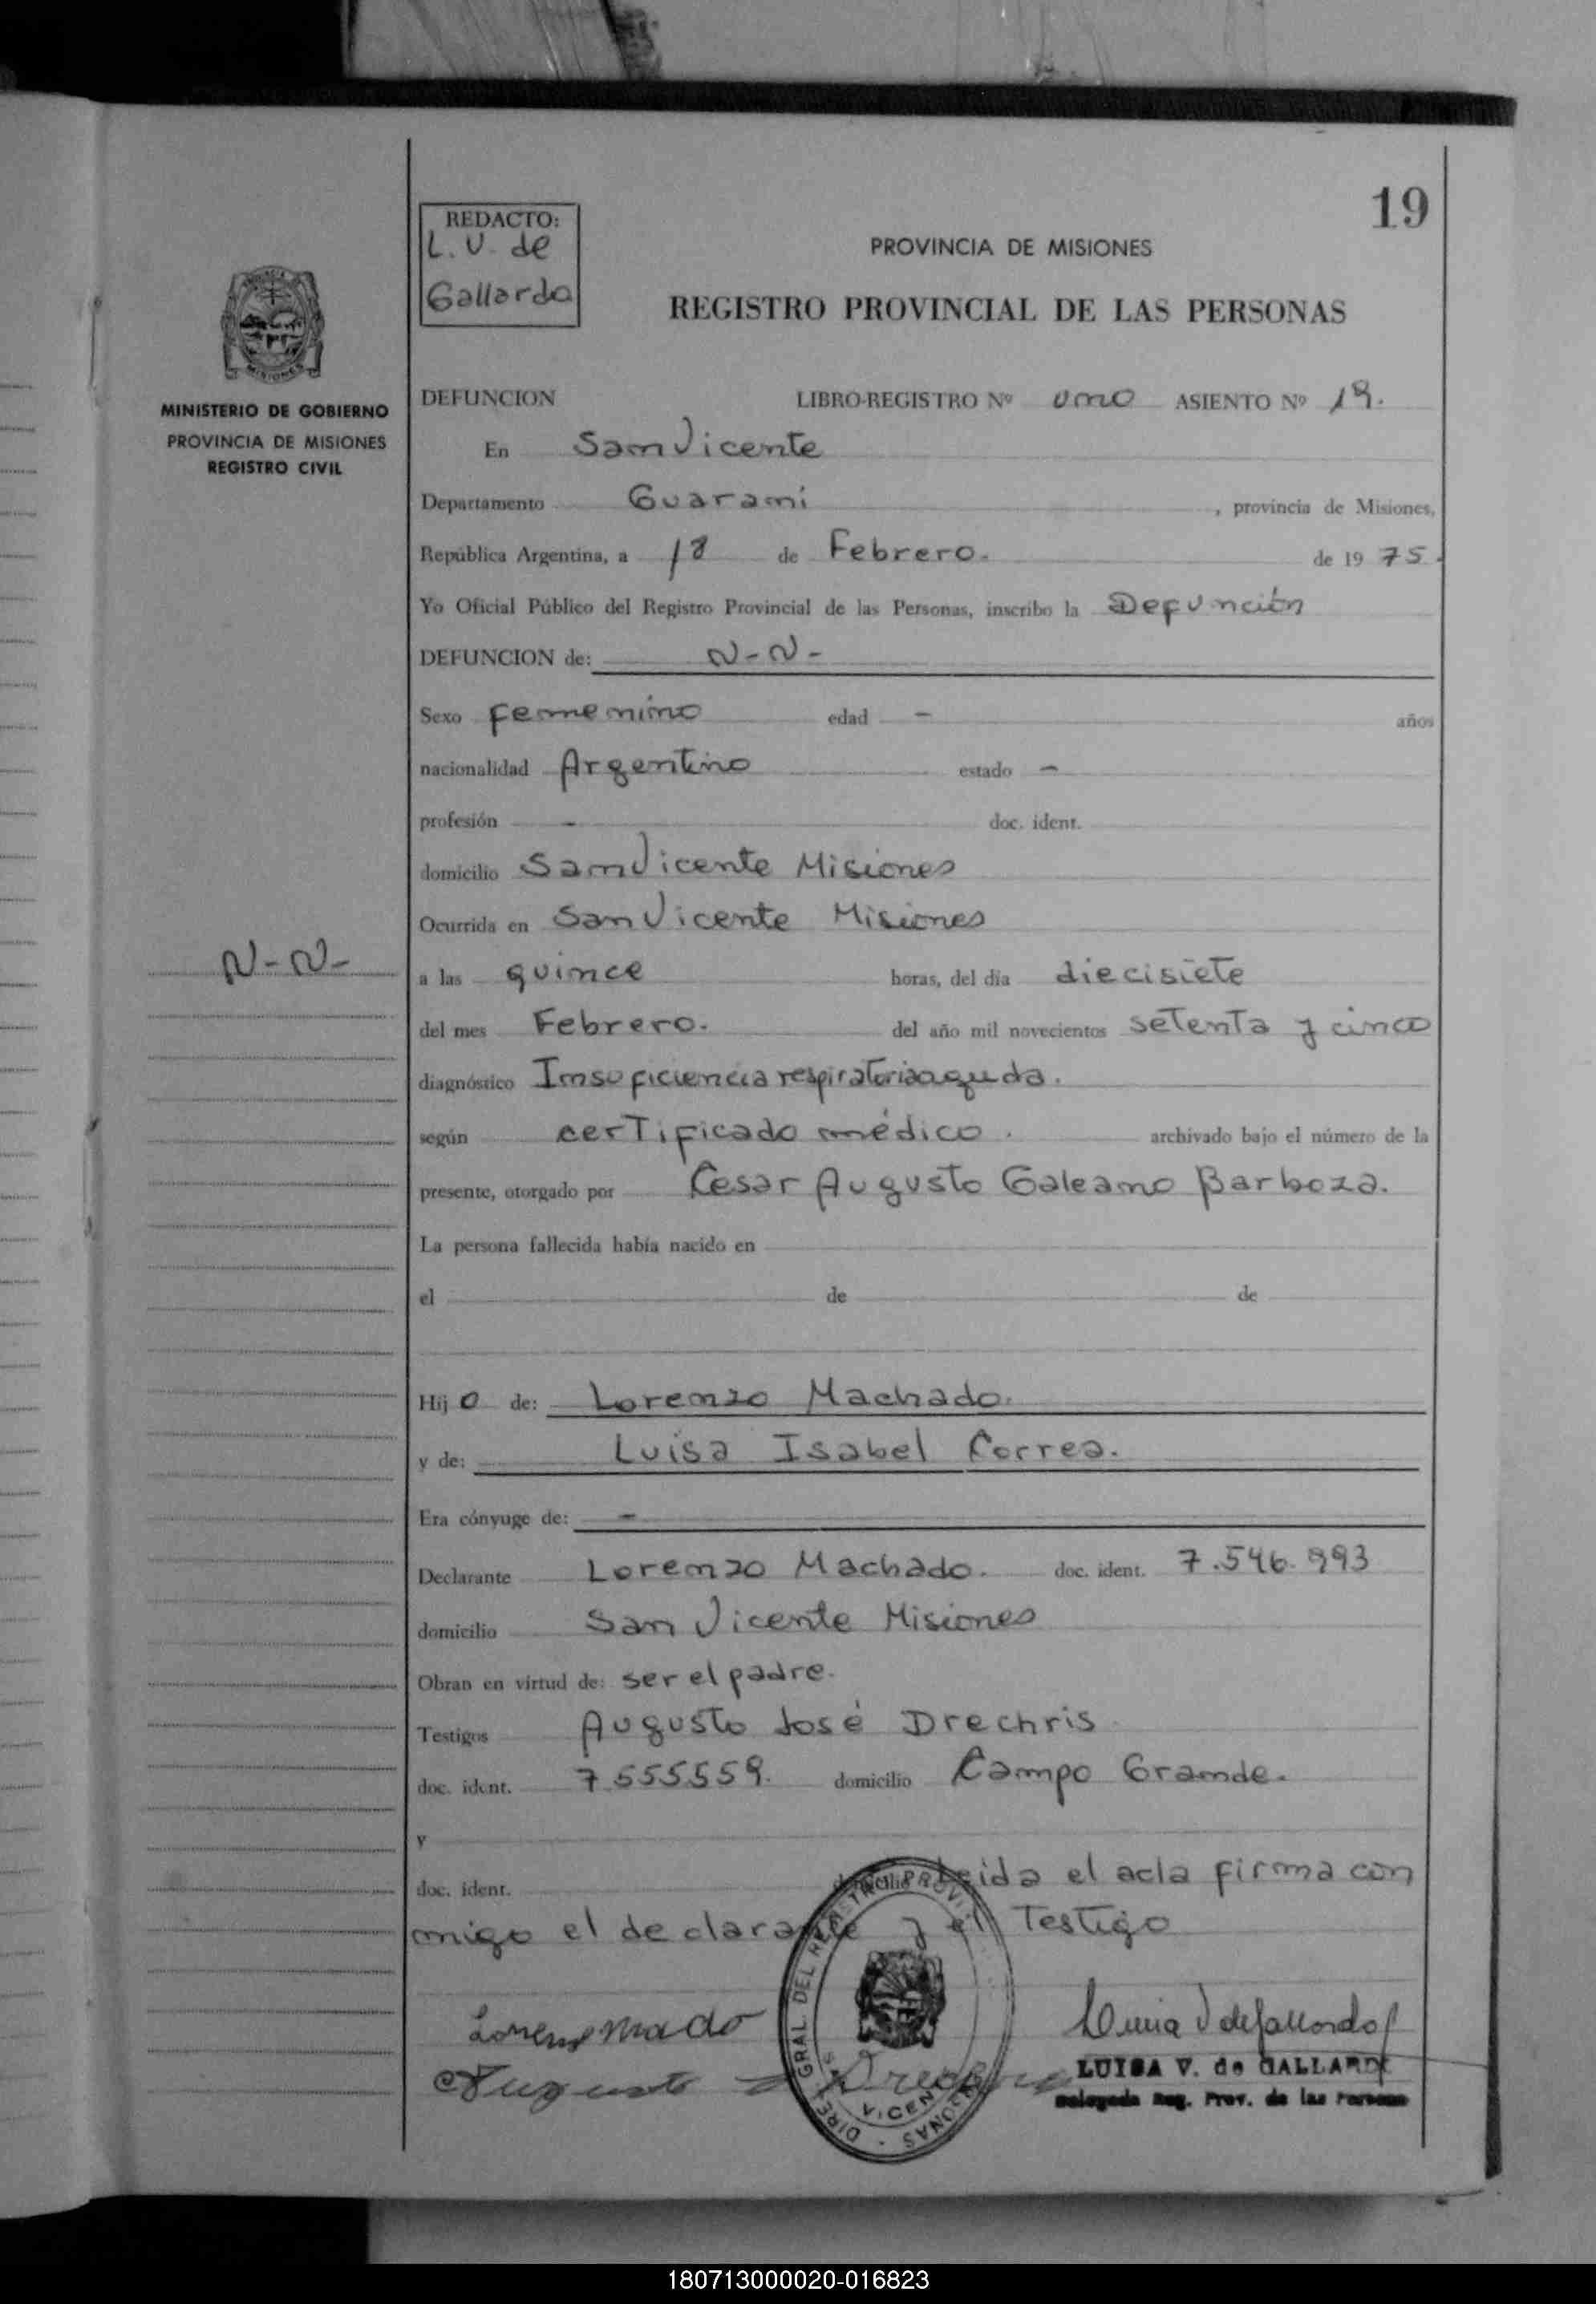 19
REDACTO:
L. V. de
Gallardo
PROVINCIA DE MISIONES
REGISTRO PROVINCIAL DE LAS PERSONAS
MISIONES
MINISTERIO DE GOBIERNO
PROVINCIA DE MISIONES
REGISTRO CIVIL
DEFUNCION LIBRO-REGISTRO Nº uno ASIENTO Nº 19.
En San Vicente
Departamento Guaraní, provincia de Misiones,
República Argentina, a 18 de Febrero. de 1975.
Yo Oficial Público del Registro Provincial de las Personas, inscribo la Defunción
DEFUNCION de: N-N-
Sexo femenino edad - años
nacionalidad Argentino estado -
profesión - doc. ident.
domicilio San Vicente Misiones
Ocurrida en San Vicente Misiones
N-N-
a las quince horas, del día diecisiete
del mes Febrero. del año mil novecientos setenta y cinco
diagnóstico Insuficiencia respiratoria aguda.
según certificado médico. archivado bajo el número de la
presente, otorgado por Cesar Augusto Galeano Barboza.
La persona fallecida había nacido en
el de de
Hijo de: Lorenzo Machado.
y de: Luisa Isabel Correa.
Era cónyuge de: -
Declarante Lorenzo Machado. doc. ident. 7.546.993
domicilio San Vicente Misiones
Obran en virtud de: ser el padre.
Testigos Augusto José Drechris
doc. ident. 7.555.559. domicilio Campo Grande.
y
doc. ident. domicilio Leida el acta firma con
migo el declarante y el Testigo
DIREC. GRAL. DEL REGISTRO PROV. PERSONAS
VICEN
Augusto
LUISA V. de GALLARDO
Delegada Reg. Prov. de las Personas
180713000020-016823